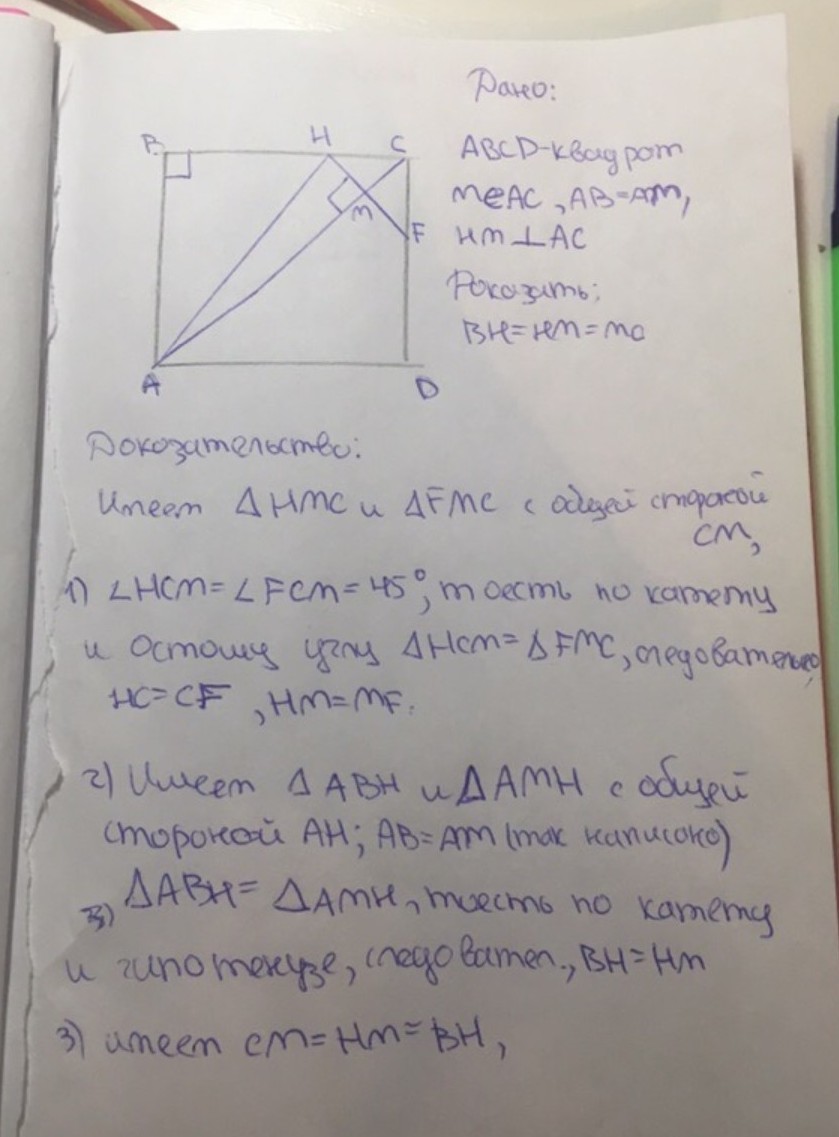 Дано:
B H C
ABCD-квадрат
M∈AC, AB=AM,
M F
HM⊥AC
Доказать:
BH=HM=MC
A D
Доказательство:
Имеем ΔHMC и ΔFMC с общей стороной
CM,
1) ∠HCM=∠FCM=45°, тоесть по катету
и остому углу ΔHCM=ΔFMC, следовательно,
HC=CF, HM=MF.
2) Имеем ΔABH и ΔAMH с общей
стороной AH; AB=AM (так написоно)
3) ΔABH=ΔAMH, тоесть по катету
и гипотенузе, следовател., BH=HM
3) имеем CM=HM=BH,